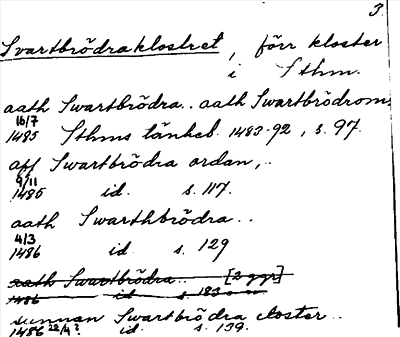 3.
Svartbrödraklostret, förr kloster
i Sthm.
aath Swartbrödra.. aath Swartbrödrom
16/7
1485 Sthms tänkeb. 1483-92, s. 97.
aff Swartbrödra ordan,..
4/11
1485 id. s. 117.
aath Swarthbrödra..
4/3
1486 id. s. 129
aath Swartbrödra.. [2 ggr]
1486 id. s. 183
sunnan Swartbrödra closter..
1486 22/4? id. s. 139.